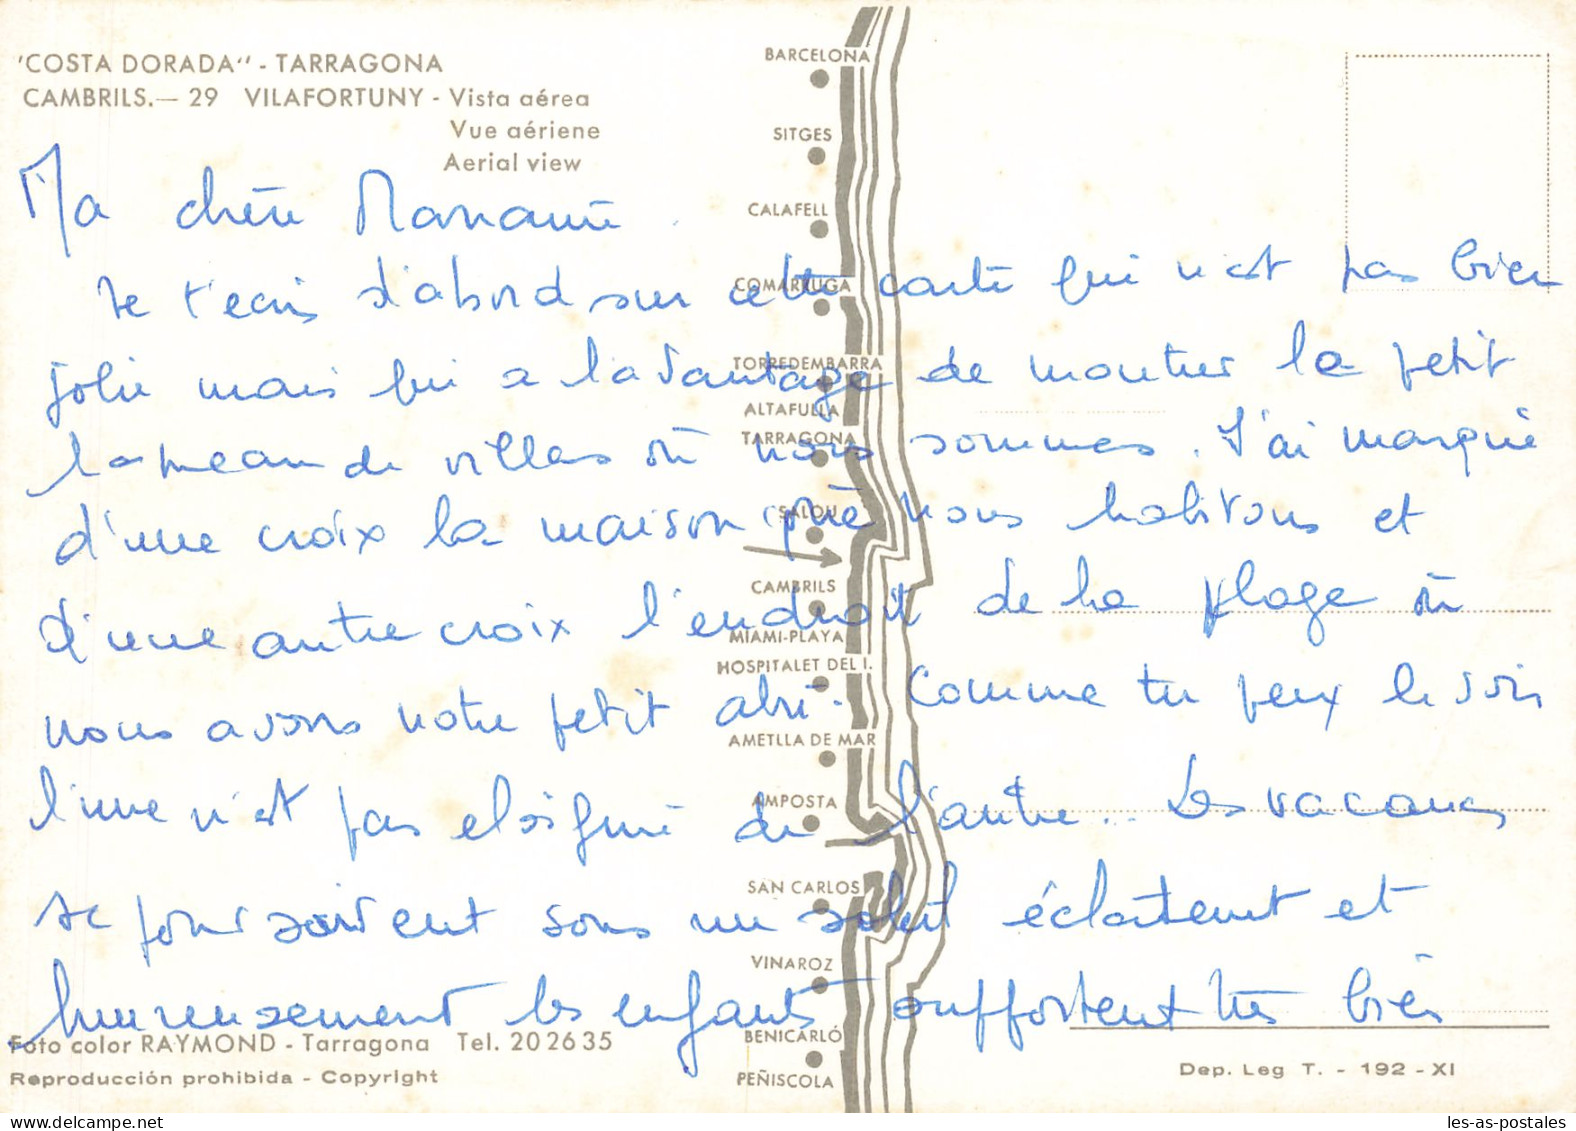 'COSTA DORADA" - TARRAGONA
CAMBRILS.— 29 VILAFORTUNY - Vista aérea
Vue aériene
Aerial view
BARCELONA
SITGES
CALAFELL
COMARRUGA
TORREDEMBARRA
ALTAFULLA
TARRAGONA
SALOU
CAMBRILS
MIAMI-PLAYA
HOSPITALET DEL I.
AMETLLA DE MAR
AMPOSTA
SAN CARLOS
VINAROZ
BENICARLÓ
PEÑISCOLA
Ma chère
Je t'écris d'abord sur cette carte qui n'est pas bien
jolie mais qui a l'avantage de montrer le petit
hameau de villas où nous sommes. J'ai marqué
d'une croix la maison que nous habitons et
d'une autre croix l'endroit de la plage où
nous avons notre petit abri. Comme tu peux le voir
l'une n'est pas éloigné de l'autre.. Les vacances
se poursuivent sous un soleil éclatant et
heureusement les enfants supportent très bien
Foto color RAYMOND - Tarragona Tel. 202635
Reproducción prohibida - Copyright
Dep. Leg T. - 192 - XI
les-as-postales